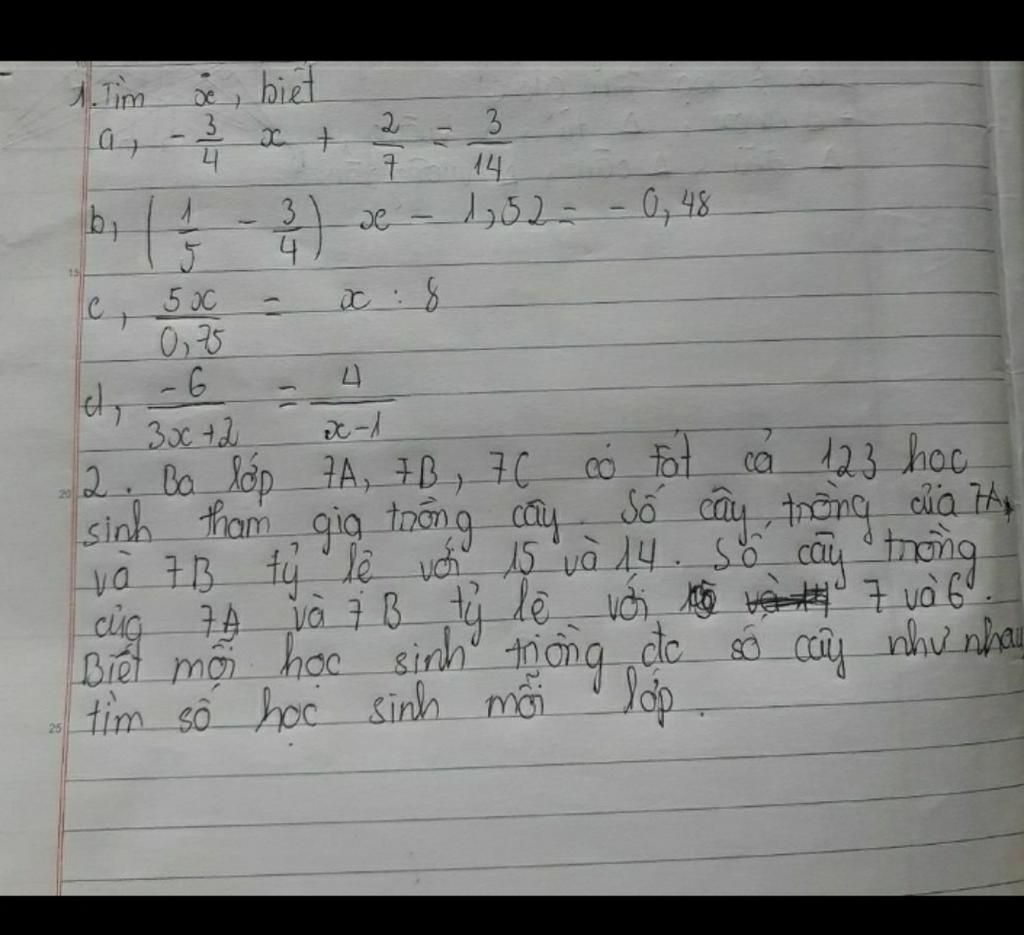 1. Tìm x, biết
a, -3/4 x + 2/7 = 3/14
b, (1/5 - 3/4) x - 1,52 = - 0,48
c, 5x/0,75 = x : 8
d, -6/3x+2 = 4/x-1
20
2. Ba lớp 7A, 7B, 7C có tất cả 123 học
sinh tham gia trồng cây. Số cây trồng của 7A
và 7B tỷ lệ với 15 và 14. Số cây trồng
của 7A và 7B tỷ lệ với 7 và 6.
Biết mỗi học sinh trồng đc số cây như nhau
tìm số học sinh mỗi lớp.
25